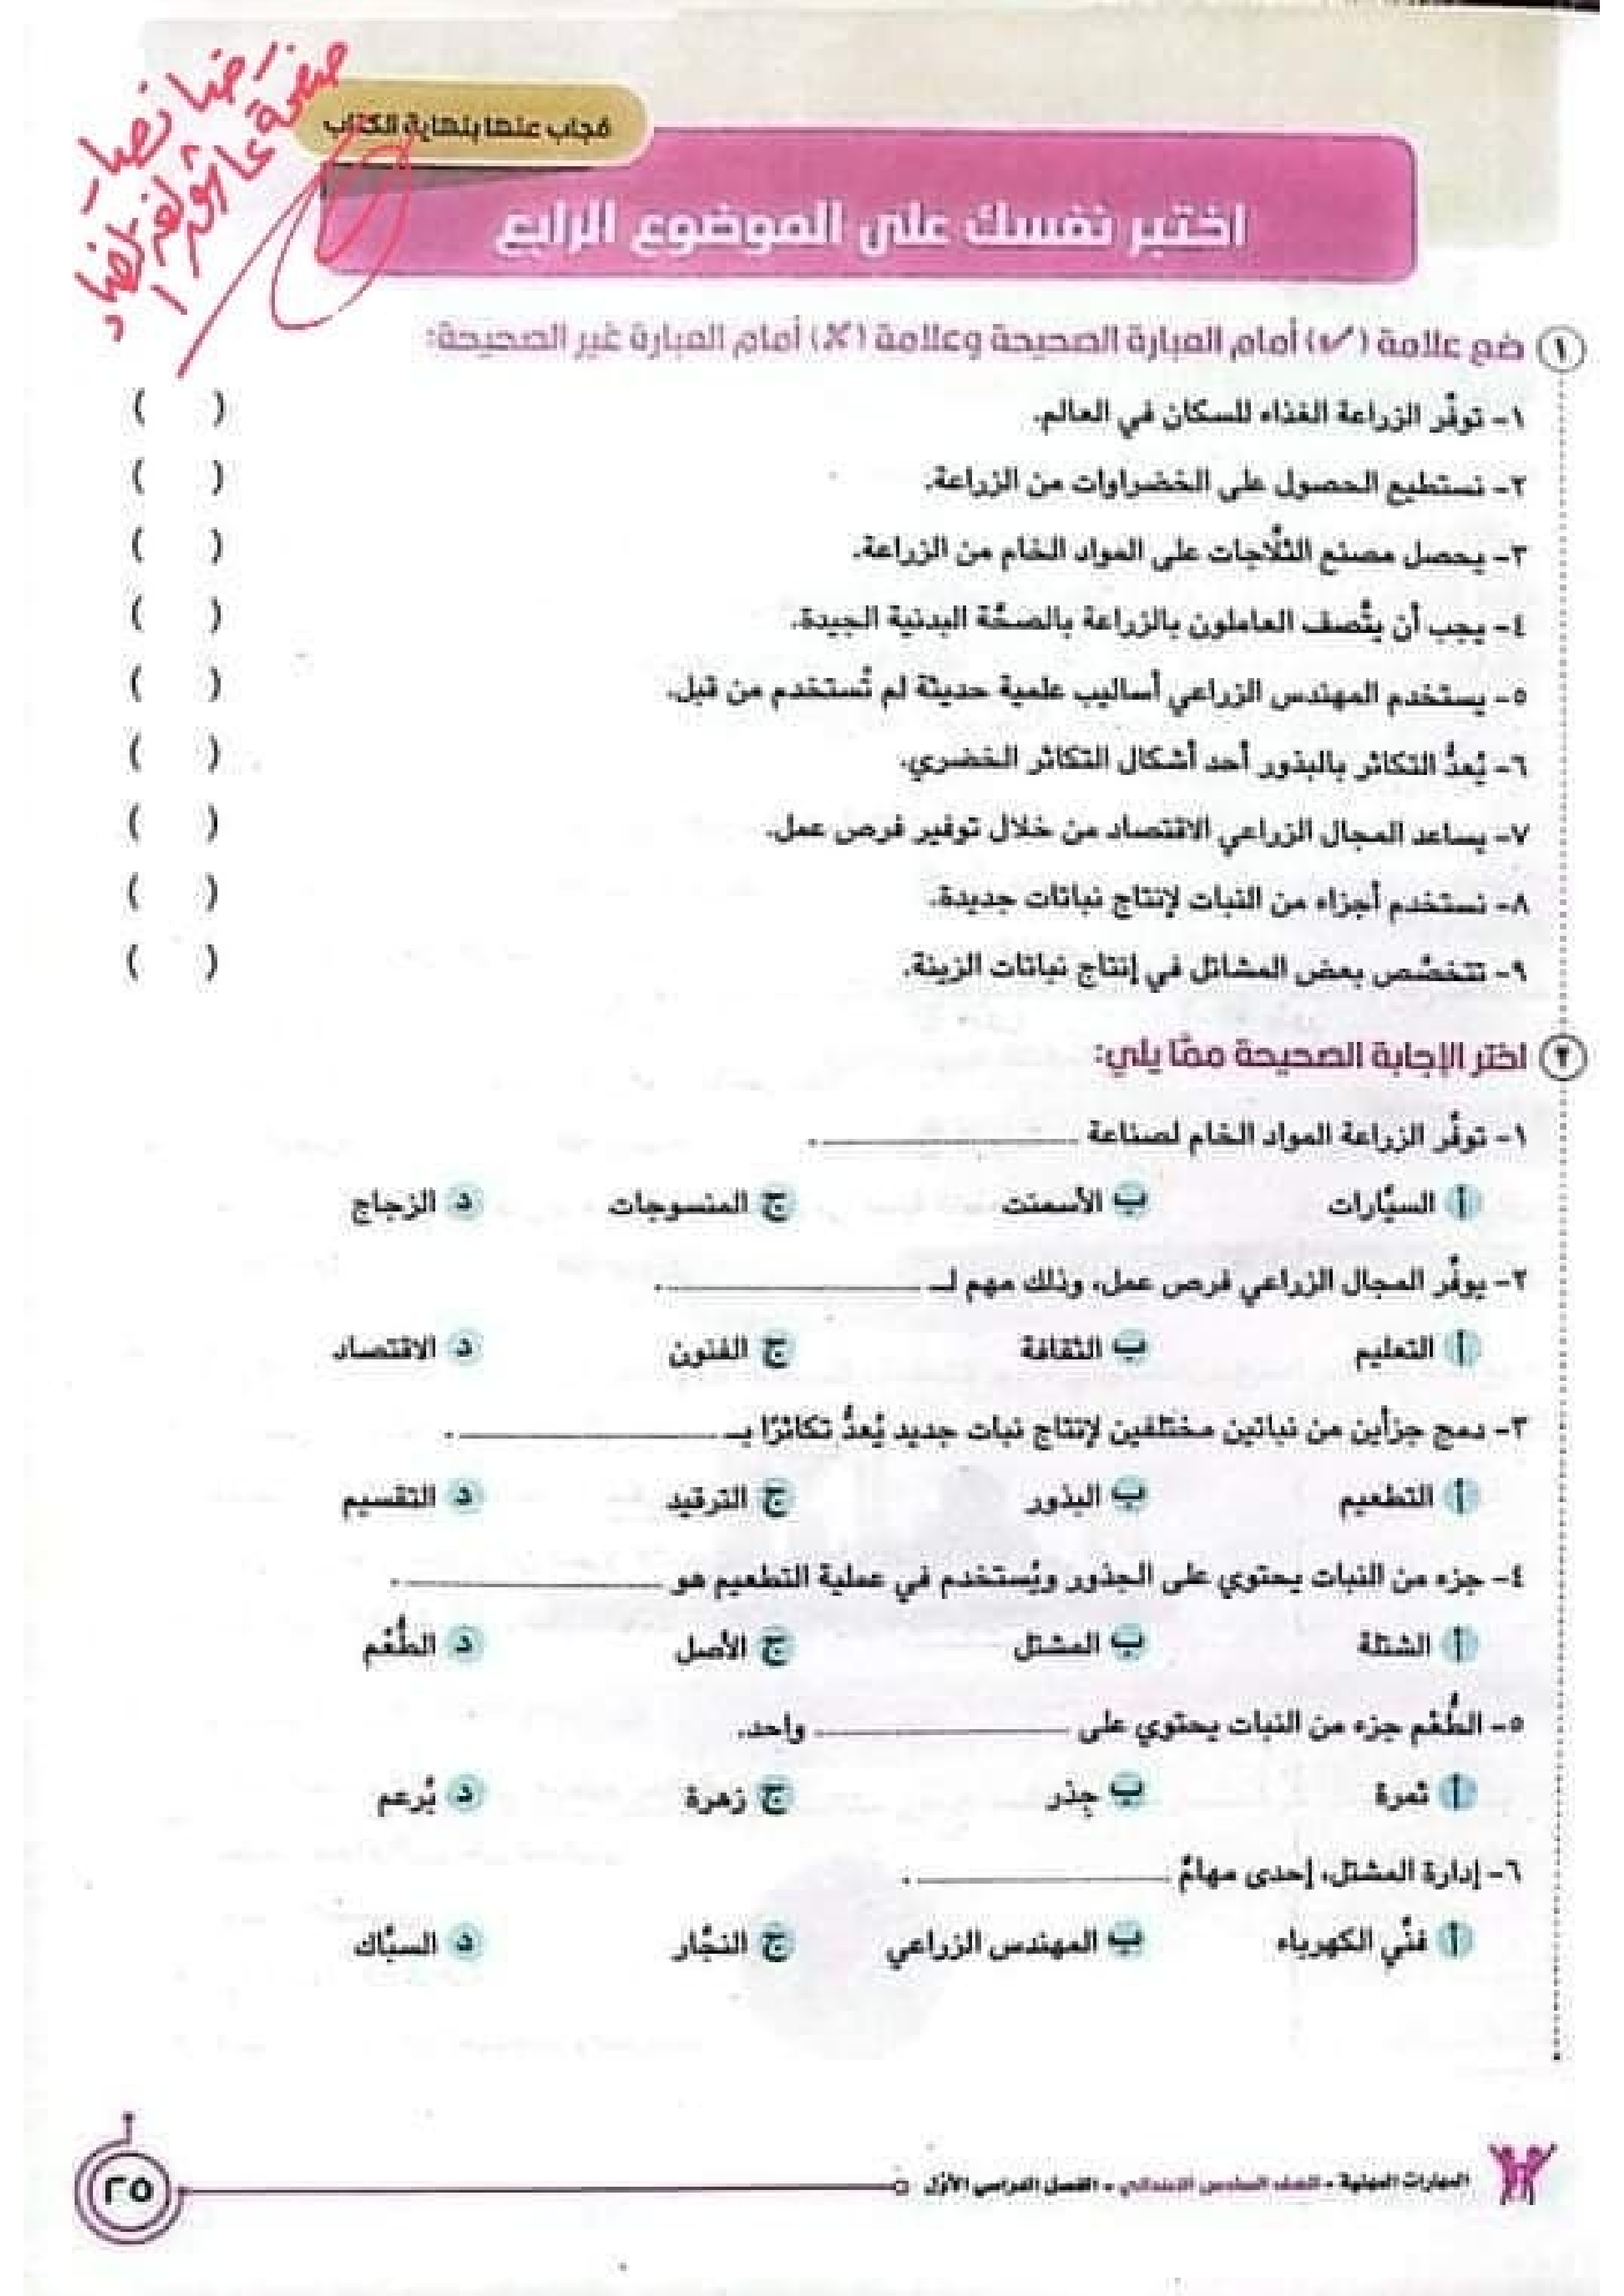 مُجاب عنها بنهاية الكتاب
اختبر نفسك على الموضوع الرابع
١ ضع علامة (✓) أمام العبارة الصحيحة وعلامة (X) أمام العبارة غير الصحيحة:
١- توفِّر الزراعة الغذاء للسكان في العالم. ( )
٢- نستطيع الحصول على الخضراوات من الزراعة. ( )
٣- يحصل مصنع الثلَّاجات على المواد الخام من الزراعة. ( )
٤- يجب أن يتَّصف العاملون بالزراعة بالصحَّة البدنية الجيدة. ( )
٥- يستخدم المهندس الزراعي أساليب علمية حديثة لم تُستخدم من قبل. ( )
٦- يُعدُّ التكاثر بالبذور أحد أشكال التكاثر الخضري. ( )
٧- يساعد المجال الزراعي الاقتصاد من خلال توفير فرص عمل. ( )
٨- نستخدم أجزاء من النبات لإنتاج نباتات جديدة. ( )
٩- تتخصَّص بعض المشاتل في إنتاج نباتات الزينة. ( )
٢ اختر الإجابة الصحيحة ممَّا يلي:
١- توفِّر الزراعة المواد الخام لصناعة ............ .
أ السيَّارات ب الأسمنت ج المنسوجات د الزجاج
٢- يوفِّر المجال الزراعي فرص عمل، وذلك مهم لـ ............ .
أ التعليم ب الثقافة ج الفنون د الاقتصاد
٣- دمج جزأين من نباتين مختلفين لإنتاج نبات جديد يُعدُّ تكاثرًا بـ ............ .
أ التطعيم ب البذور ج الترقيد د التقسيم
٤- جزء من النبات يحتوي على الجذور ويُستخدم في عملية التطعيم هو ............ .
أ الشتلة ب المشتل ج الأصل د الطُّعْم
٥- الطُّعْم جزء من النبات يحتوي على ............ واحد.
أ ثمرة ب جِذر ج زهرة د بُرعم
٦- إدارة المشتل، إحدى مهامِّ ............ .
أ فنِّي الكهرباء ب المهندس الزراعي ج النجَّار د السبَّاك
المهارات المهنية - الصف السادس الابتدائي - الفصل الدراسي الأوَّل
٢٥